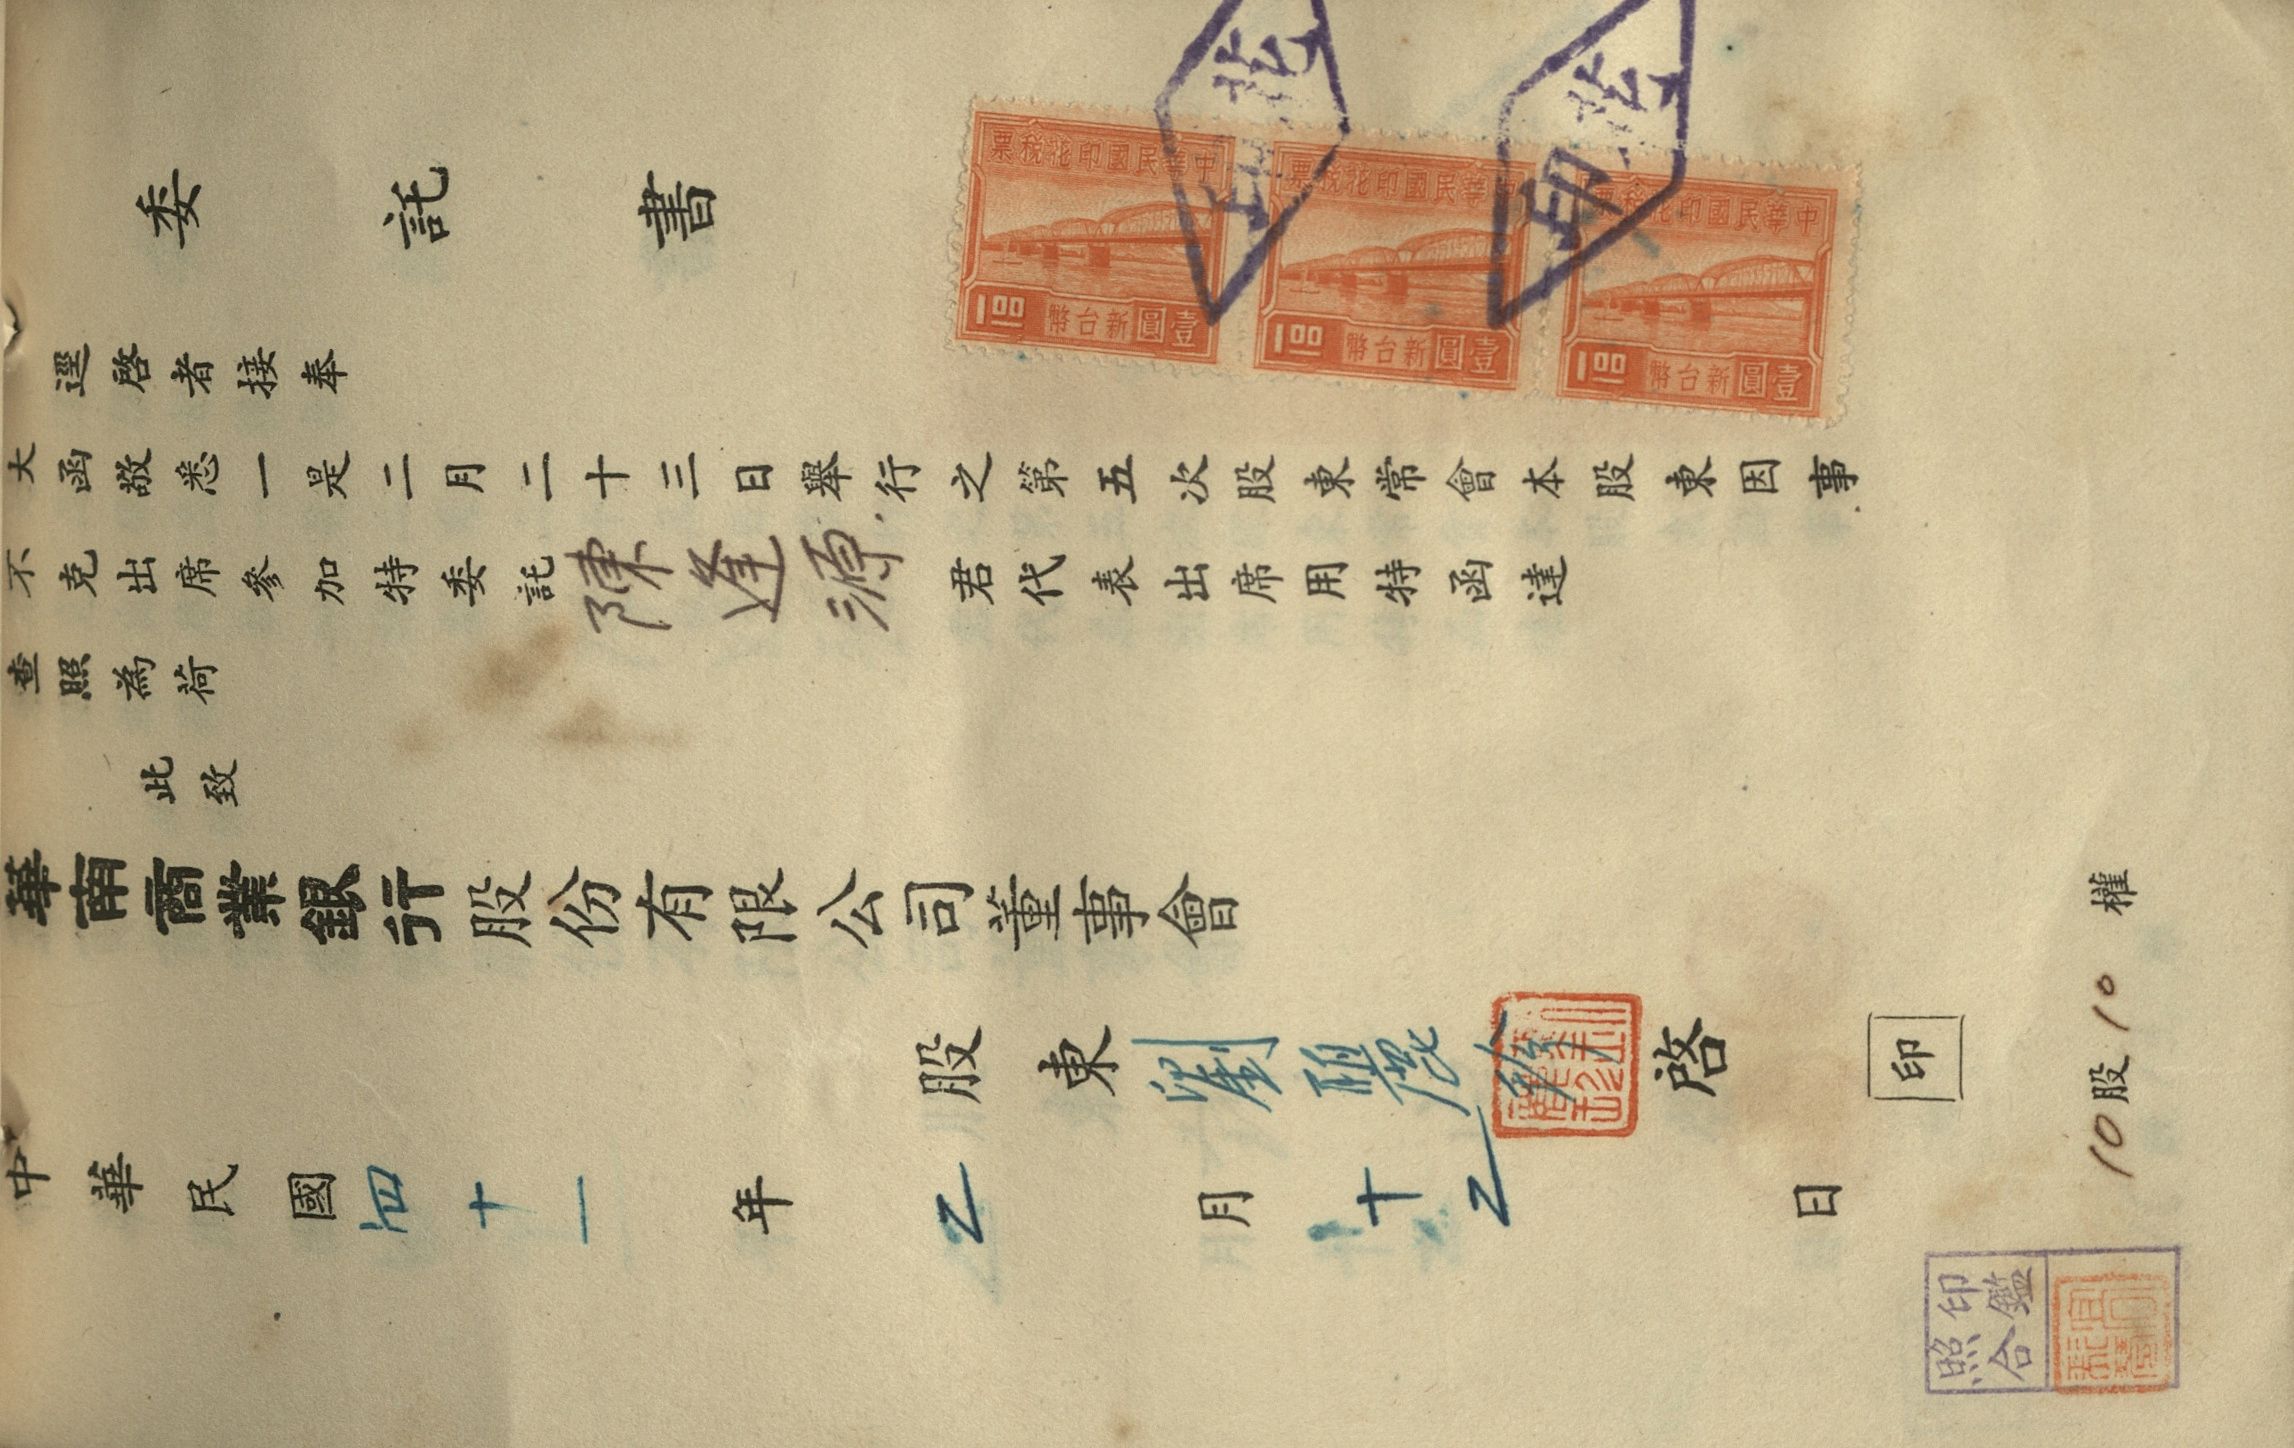 委託書
逕啓者接奉
大函敬悉一是二月二十三日舉行之第五次股東常會本股東因事
不克出席參加特委託陳逢源君代表出席用特函達
查照為荷
此致
華南商業銀行股份有限公司董事會
股東劉啓
印
中華民國四十一年2月十2日
10股10權
中華民國印花稅票
壹圓新台幣100
中華民國印花稅票
壹圓新台幣100
中華民國印花稅票
壹圓新台幣100
印鑑
照合